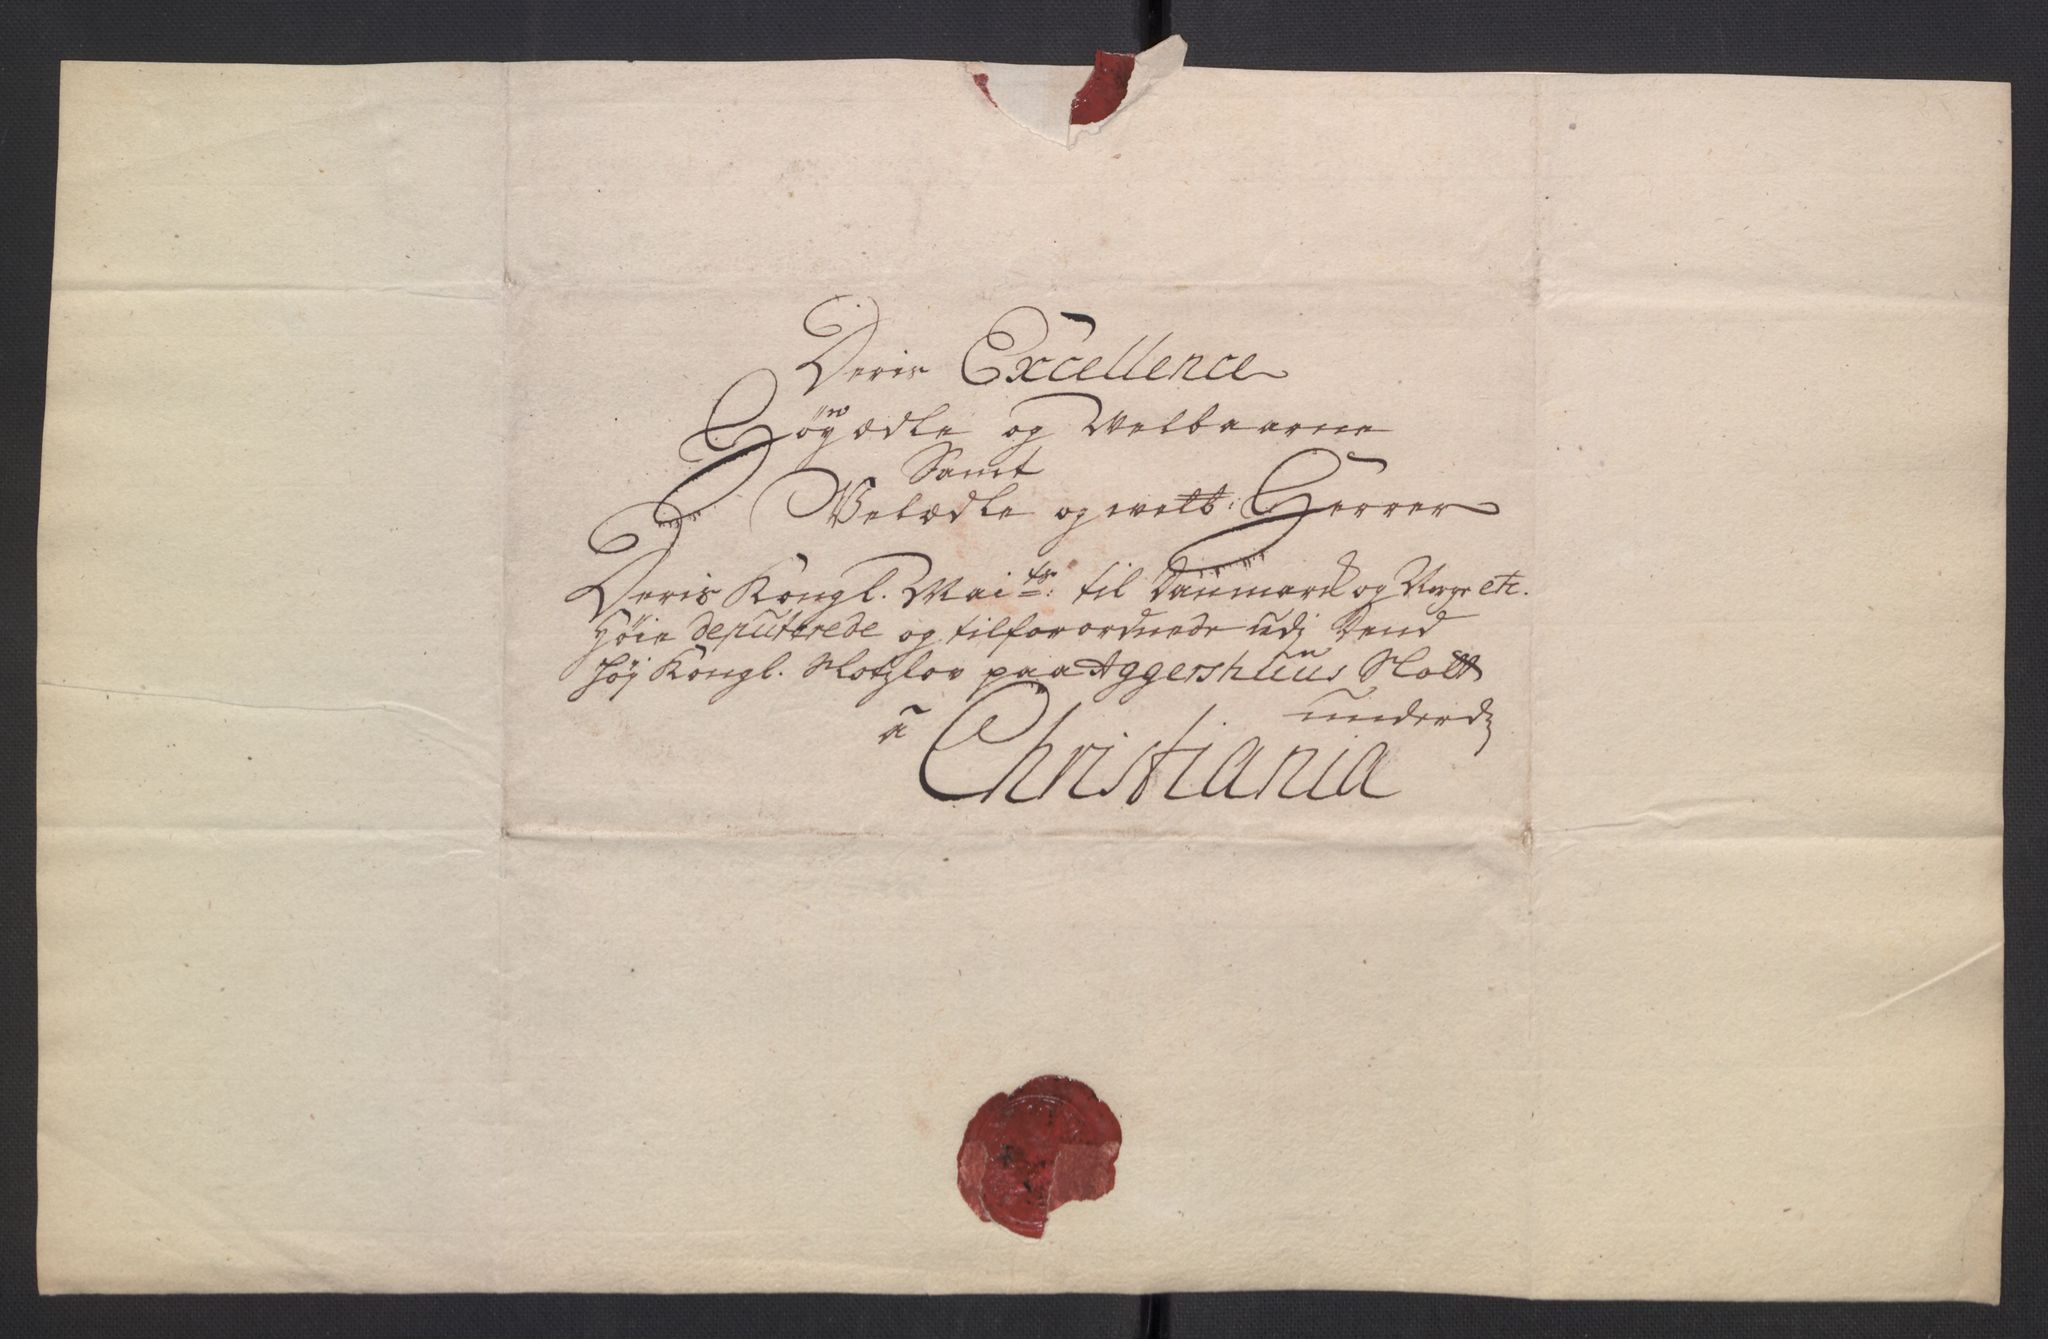 Deris Excellence
Höyædle og Velbaarne
Samt
Velædle og velb: Herrer
Deris Kongl. Maits: til Danmark og Norge etc.
Høie deputerede og tilforordnede udj Dend
høj Kongl. Slotzlov paa Aggershuus Slott
underd
a Christiania